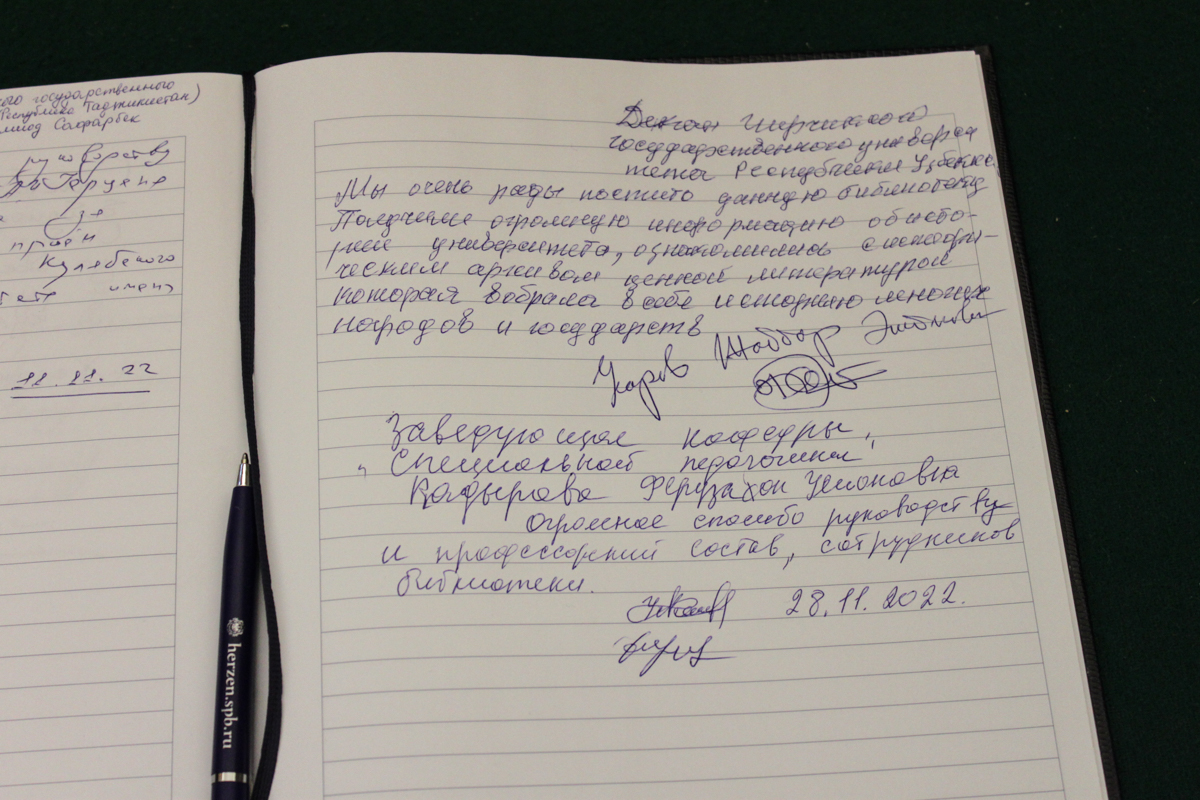 ого государственного
Республика Таджикистан)
Сафарбек
руководству
Герцена
за
приём
Кулябского
имени
11.11.22
Декан Чирчикского
государственного универси
тета Республики Узбекис
Мы очень рады посетить данную библиотеку
Получили огромную информацию об исто-
рии университета, ознакомились с истори-
ческим архивом ценной литературой
которая вобрала в себе историю многих
народов и государств
Жаббор
Заведующая кафедры,
Специальной педагогики,
Кадырова Ферузахон Усмоновна
огромное спасибо руководству
и профессорский состав, сотрудников
библиотеки.
28.11.2022.
herzen.spb.ru